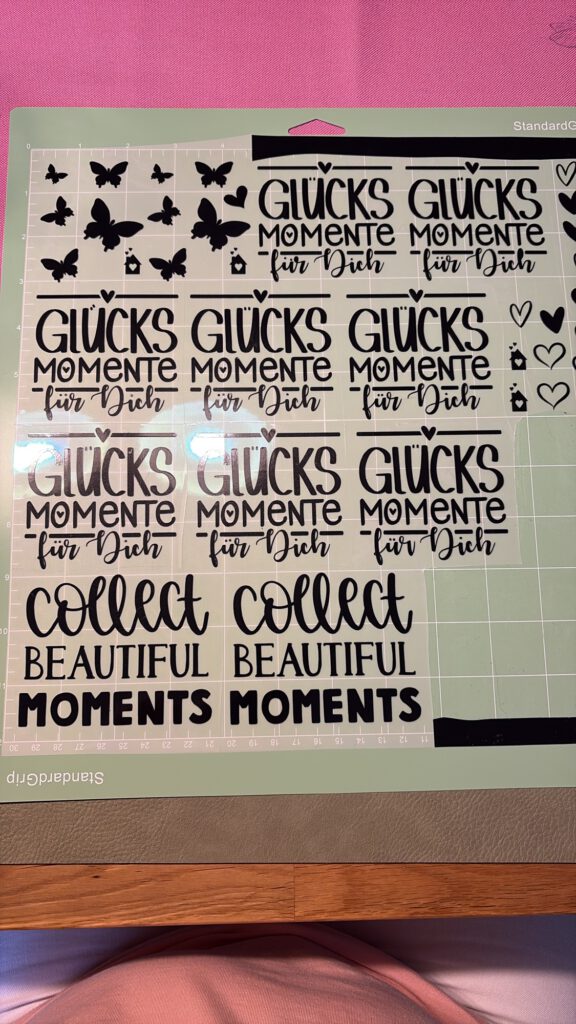 StandardG
GLÜCKS
MOMENTE
für Dich
GLÜCKS
MOMENTE
für Dich
GLÜCKS
MOMENTE
für Dich
GLÜCKS
MOMENTE
für Dich
GLÜCKS
MOMENTE
für Dich
GLÜCKS
MOMENTE
für Dich
GLÜCKS
MOMENTE
für Dich
GLÜCKS
MOMENTE
für Dich
collect
BEAUTIFUL
MOMENTS
collect
BEAUTIFUL
MOMENTS
30 29 28 27 26 25 24 23 22 21 20 19 18 17 16 15 14 13 12 11
StandardGrip